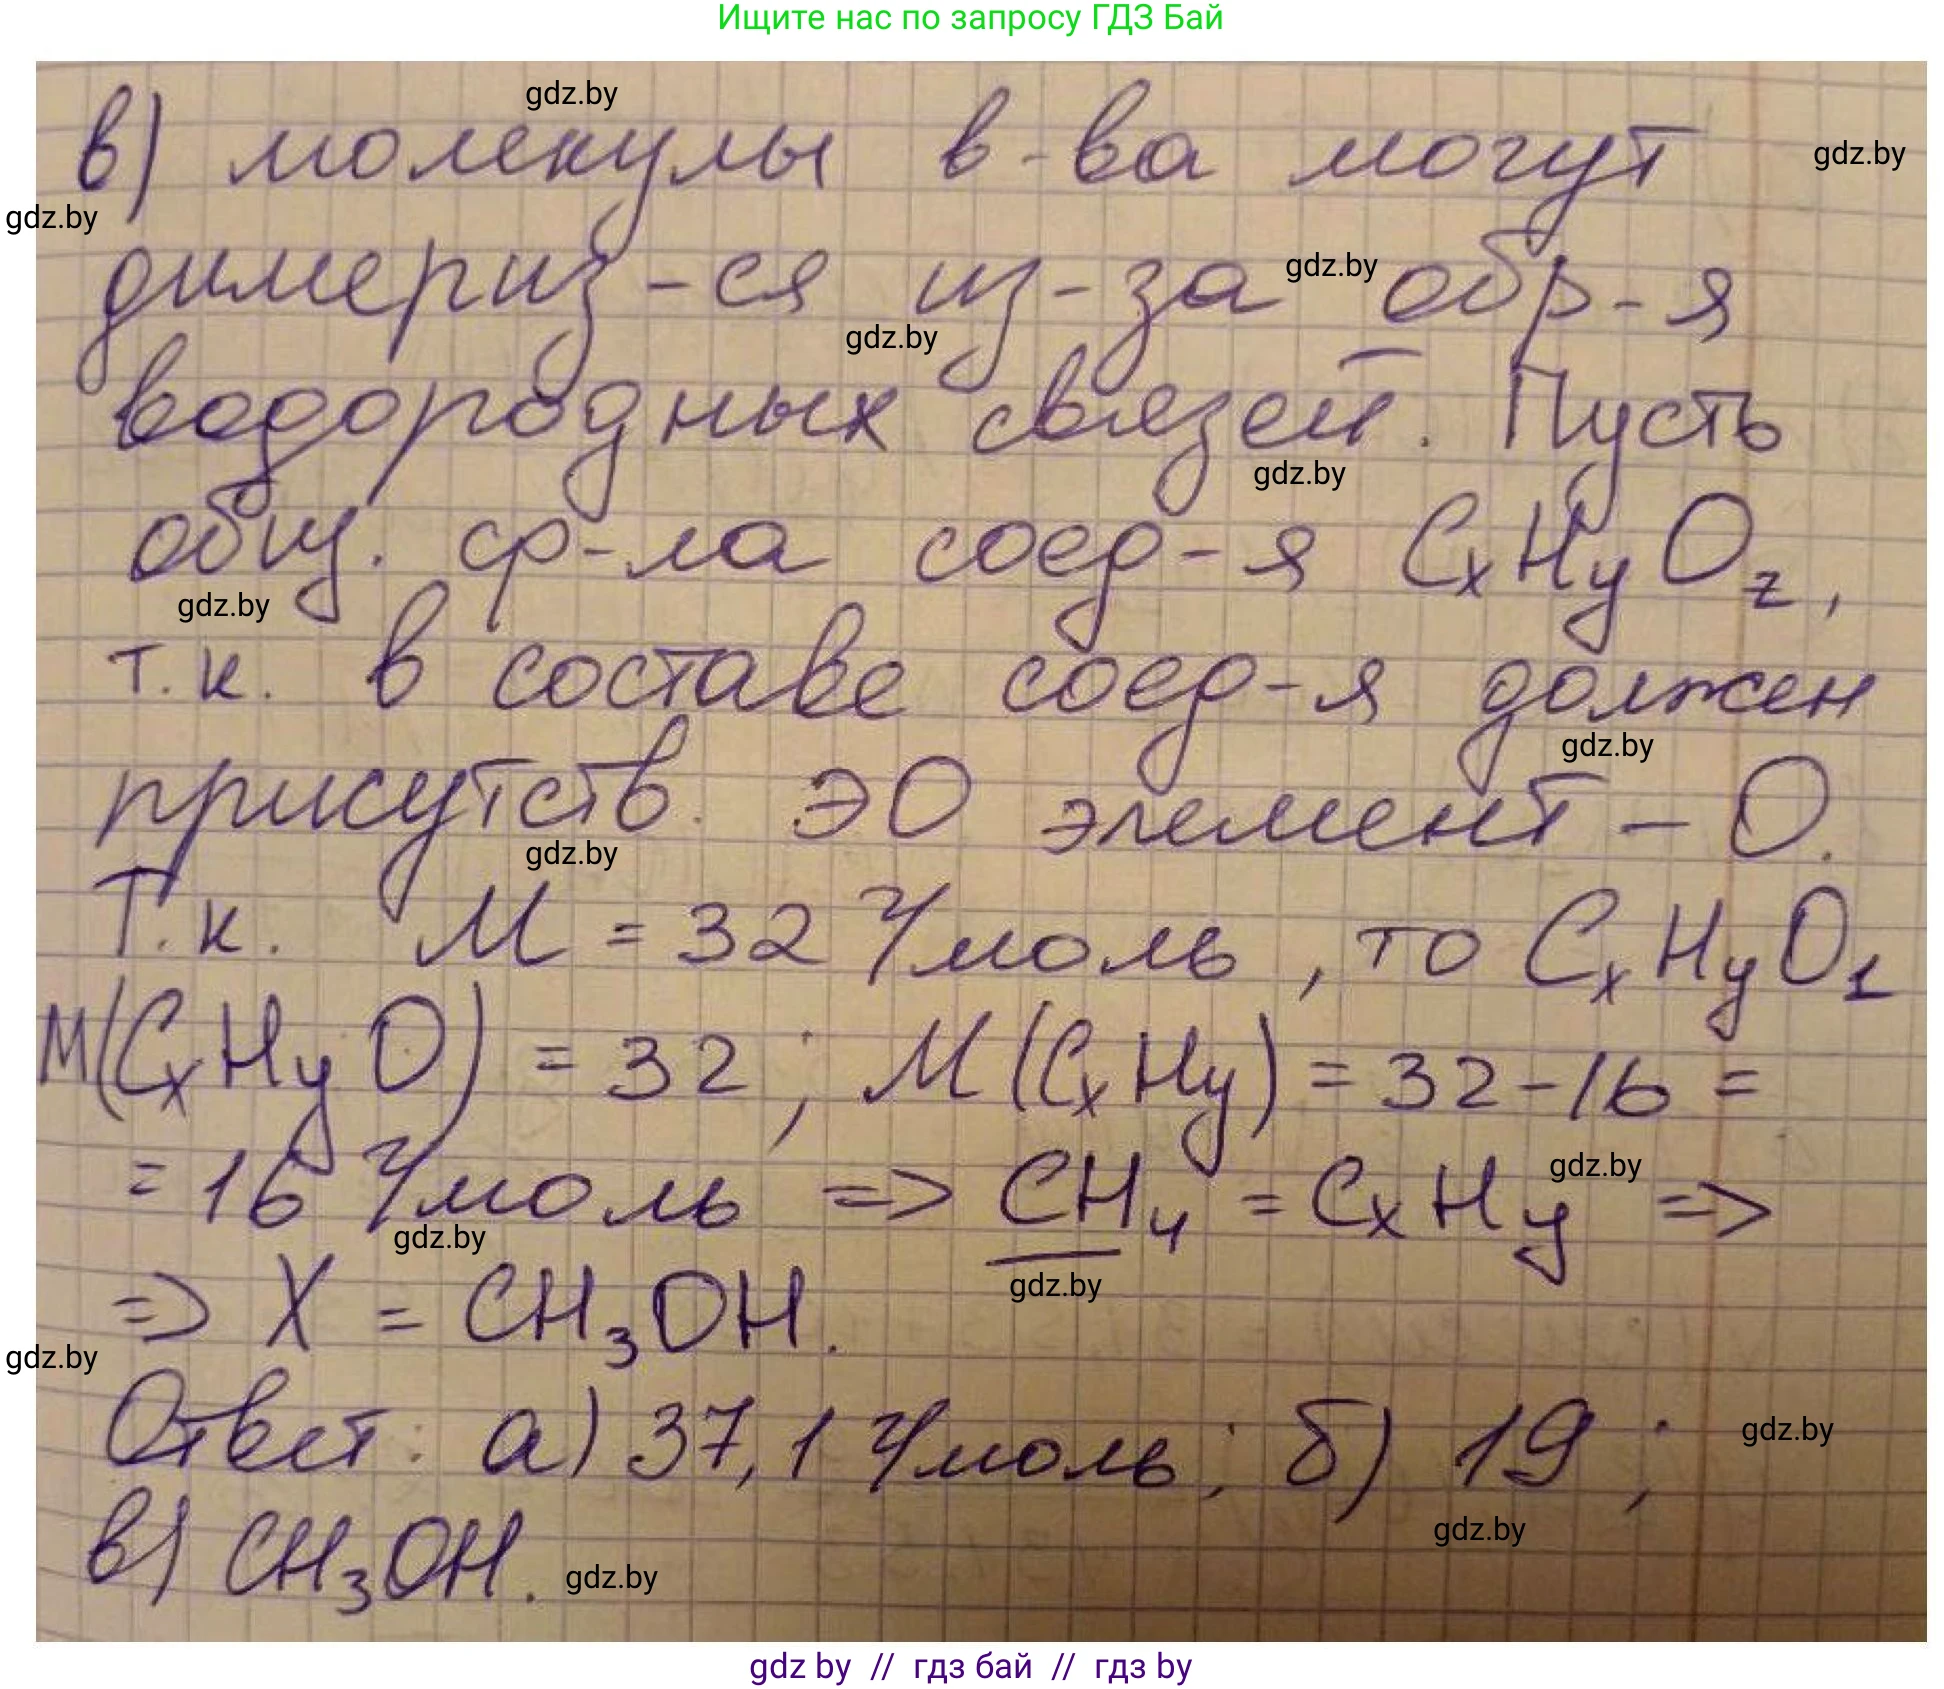 Ищите нас по запросу ГДЗ Бай
gdz.by
в) молекулы в-ва могут
gdz.by
gdz.by
димериз-ся из-за обр-я
gdz.by
gdz.by
водородных связей. Пусть
gdz.by
общ. ф-ла соед-я CxHyOz,
gdz.by
т.к. в составе соед-я должен
gdz.by
присутств. ЭО элемент - O.
gdz.by
Т.к. M = 32 г/моль, то CxHyO1
M(CxHyO) = 32; M(CxHy) = 32-16 =
= 16 г/моль => CH4 = CxHy =>
gdz.by
gdz.by
=> X = CH3OH.
gdz.by
gdz.by
Ответ: а) 37,1 г/моль; б) 19;
gdz.by
gdz.by
в) CH3OH.
gdz.by
gdz by // гдз бай // гдз by